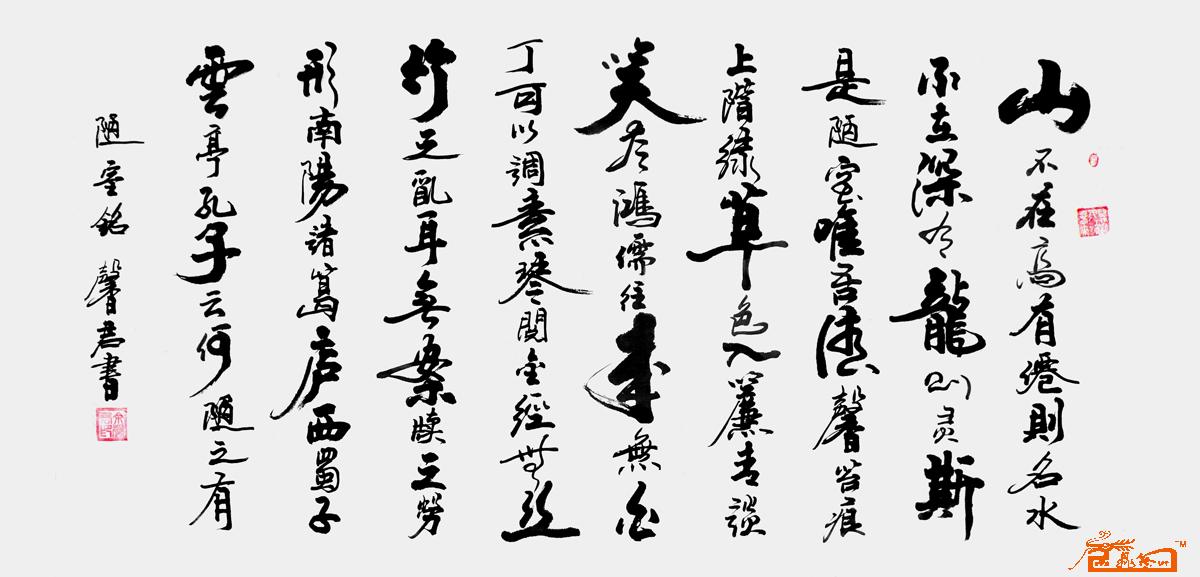 山不在高有僊則名水
不在深有龍则灵斯
是陋室唯吾德馨苔痕
上階緑草色入簾青談
笑有鴻儒往来無白
丁可以調素琴閲金經無丝
竹之亂耳無案牍之勞
形南陽諸葛庐西蜀子
雲亭孔子云何陋之有
陋室銘 馨君書